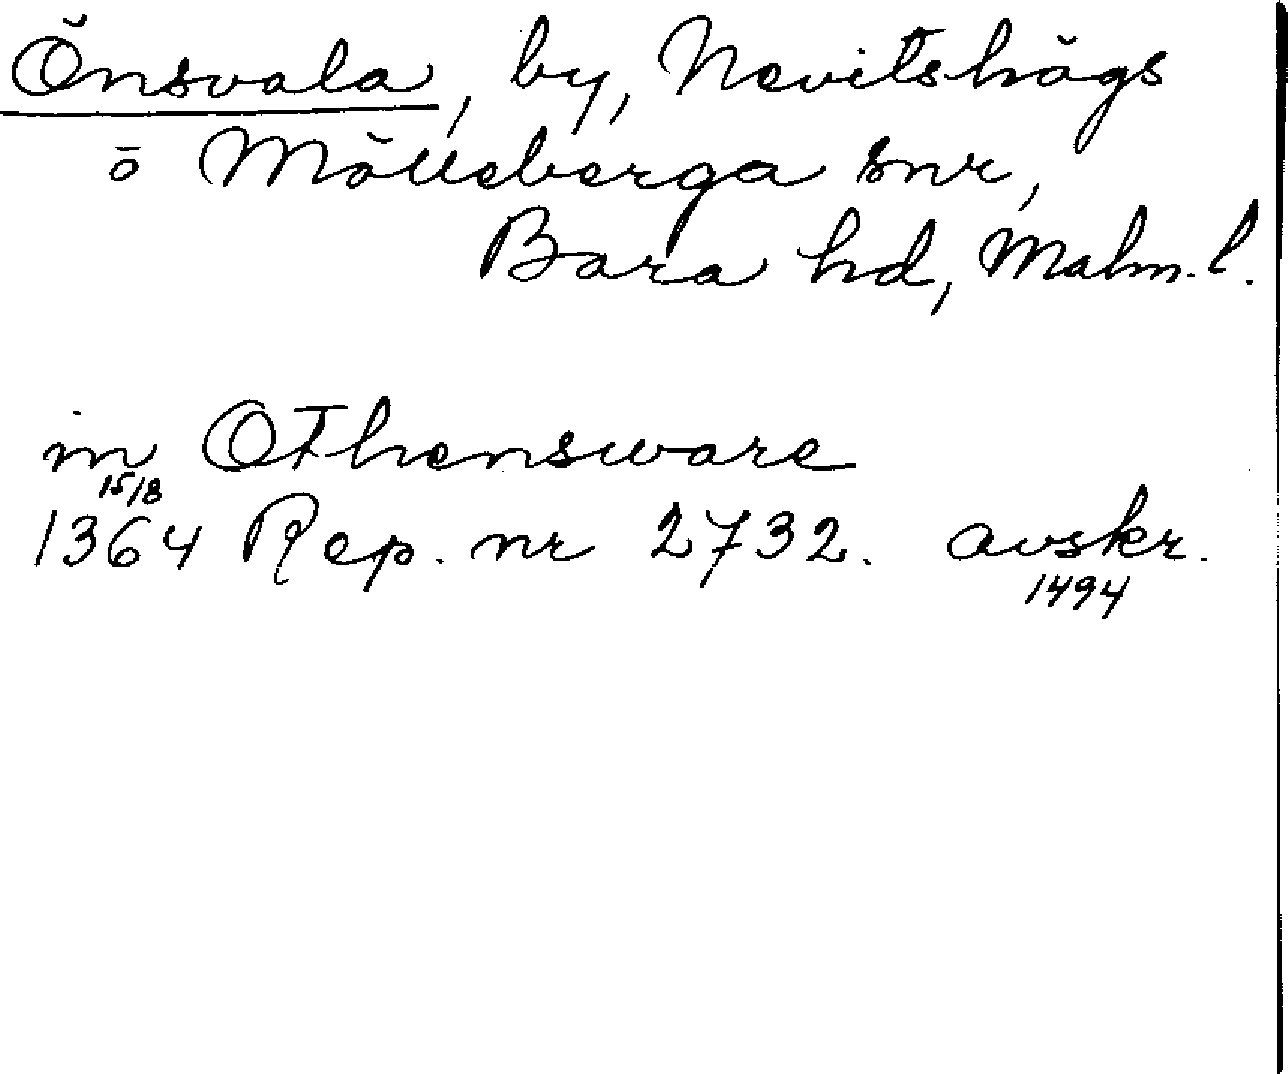 Önsvala, by, Nevitshögs
o Mölleberga snr,
Bara hd, Malm. l.
in Othensware
15/8
1364 Rep. nr 2732. avskr.
1494